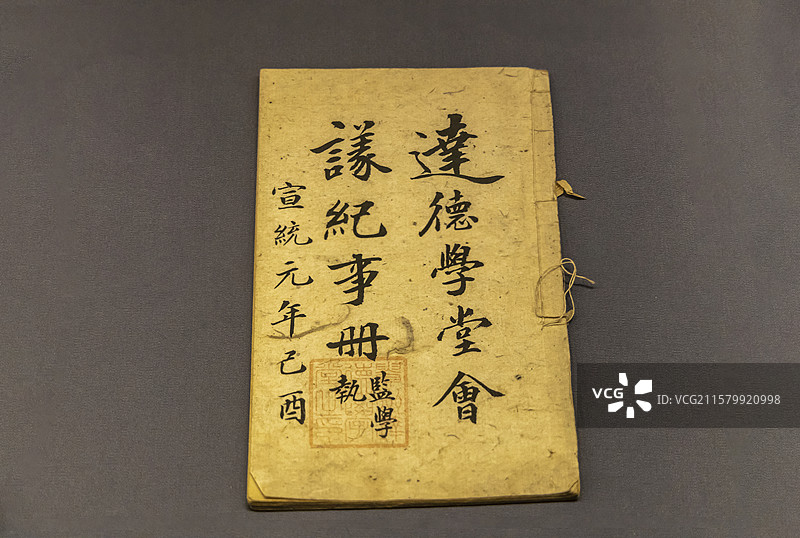 達德學堂會
議紀事冊
監學
執
宣統元年己酉
VCG
VCG
ID:VCG211579920998